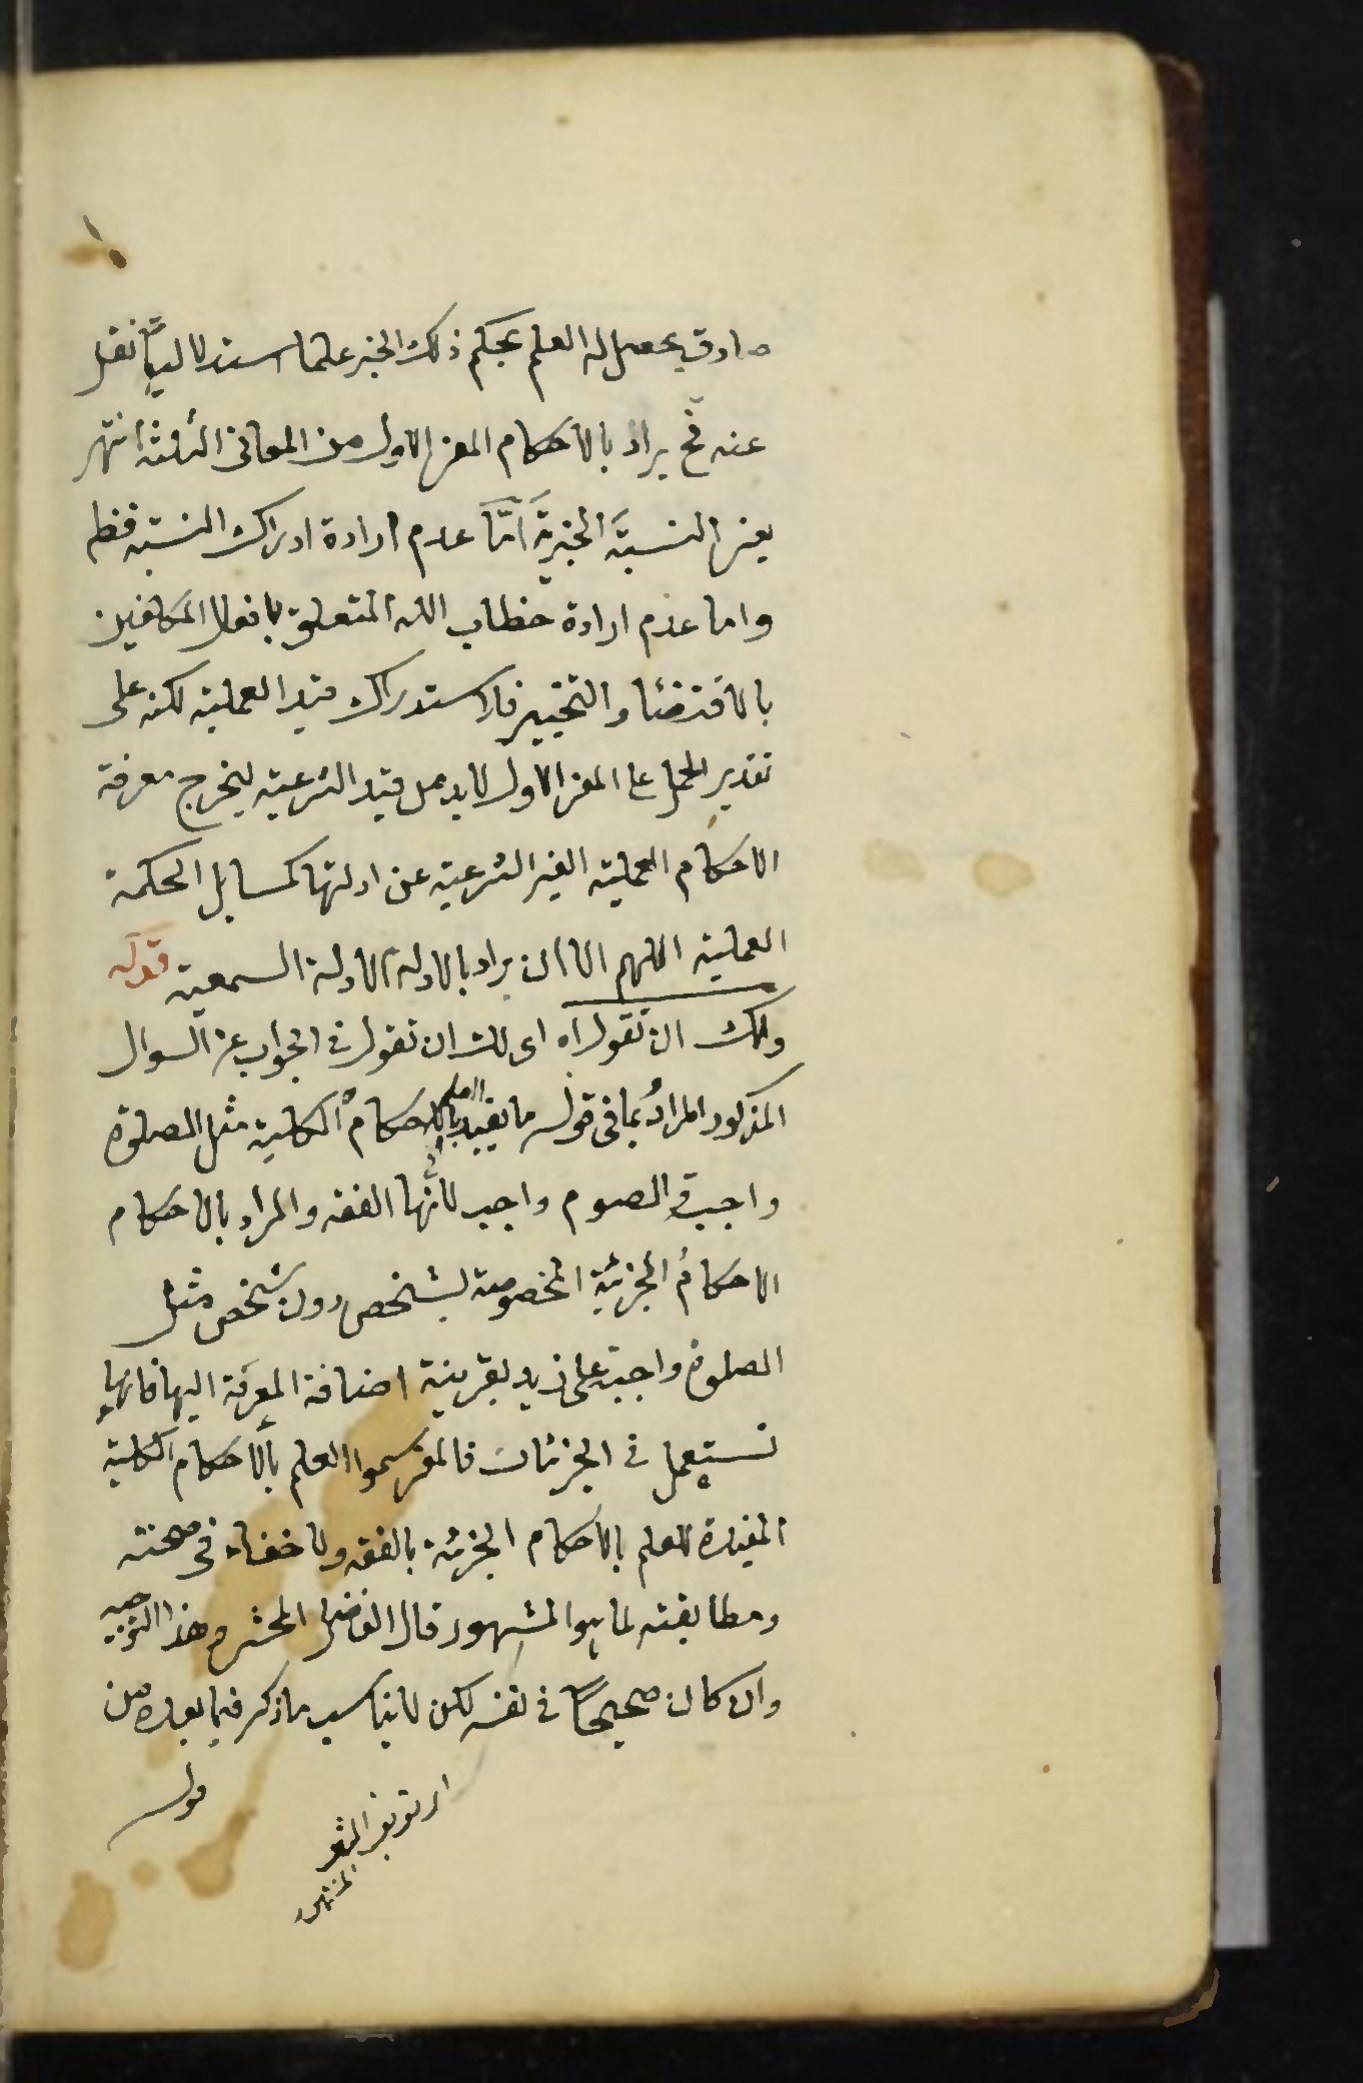 صادق يحصل له العلم بحكم ذلك الخبر علما استدلاليًّا نقل
عنه فح يراد بالاحكام المعنى الاول من المعانى الثلثة انتهى
يعنى النسبةَ الخبريةَ امَّا عدم ارادة ادراك النسبة فظ
واما عدم ارادة خطاب الله المتعلق بافعال المكلفين
بالاقتضاء والتخيير فلاستدراك قيد العملية لكنه على
تقدير الحمل على المعنى الاول لابد من قيد الشرعية ليخرج معرفة
الاحكام العملية الغير الشرعية عن ادلتها كمسايل الحكمة
العملية اللهم الا ان يراد بالادلة الادلة السمعية قوله
ولك ان تقول آه اى لك ان تقول فى الجواب عن السوال
المذكور المرادُ بما فى قوله ما يفيد العلم بالاحكام الكلية مثل الصلوة
واجبة والصوم واجب لانَّها الفقه والمراد بالاحكام
الاحكامُ الجزئيةِ المخصوصة لشخص دون شخص مثل
الصلوة واجبة على زيد بقرينة اضافة المعرفة اليها فانها
تستعمل فى الجزئيات فالمعنى سموا العلم بالاحكام الكلية
المفيدة للعلم بالاحكام الجزئية بالفقه ولا خفاء فى صحته
ومطابقته لما هو المشهور قال الفاضل المحشى وهذا التوجيه
وان كان صحيحًا فى نفسه لكن لا يناسب ما ذكر فيما بعده من
قوله